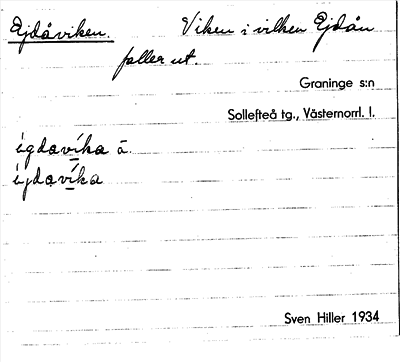 Ejdåviken. Viken i vilken Ejdån
faller ut.
Graninge s:n
Sollefteå tg., Västernorrl. l.
ígdavíka å.
íjdavíka
Sven Hiller 1934